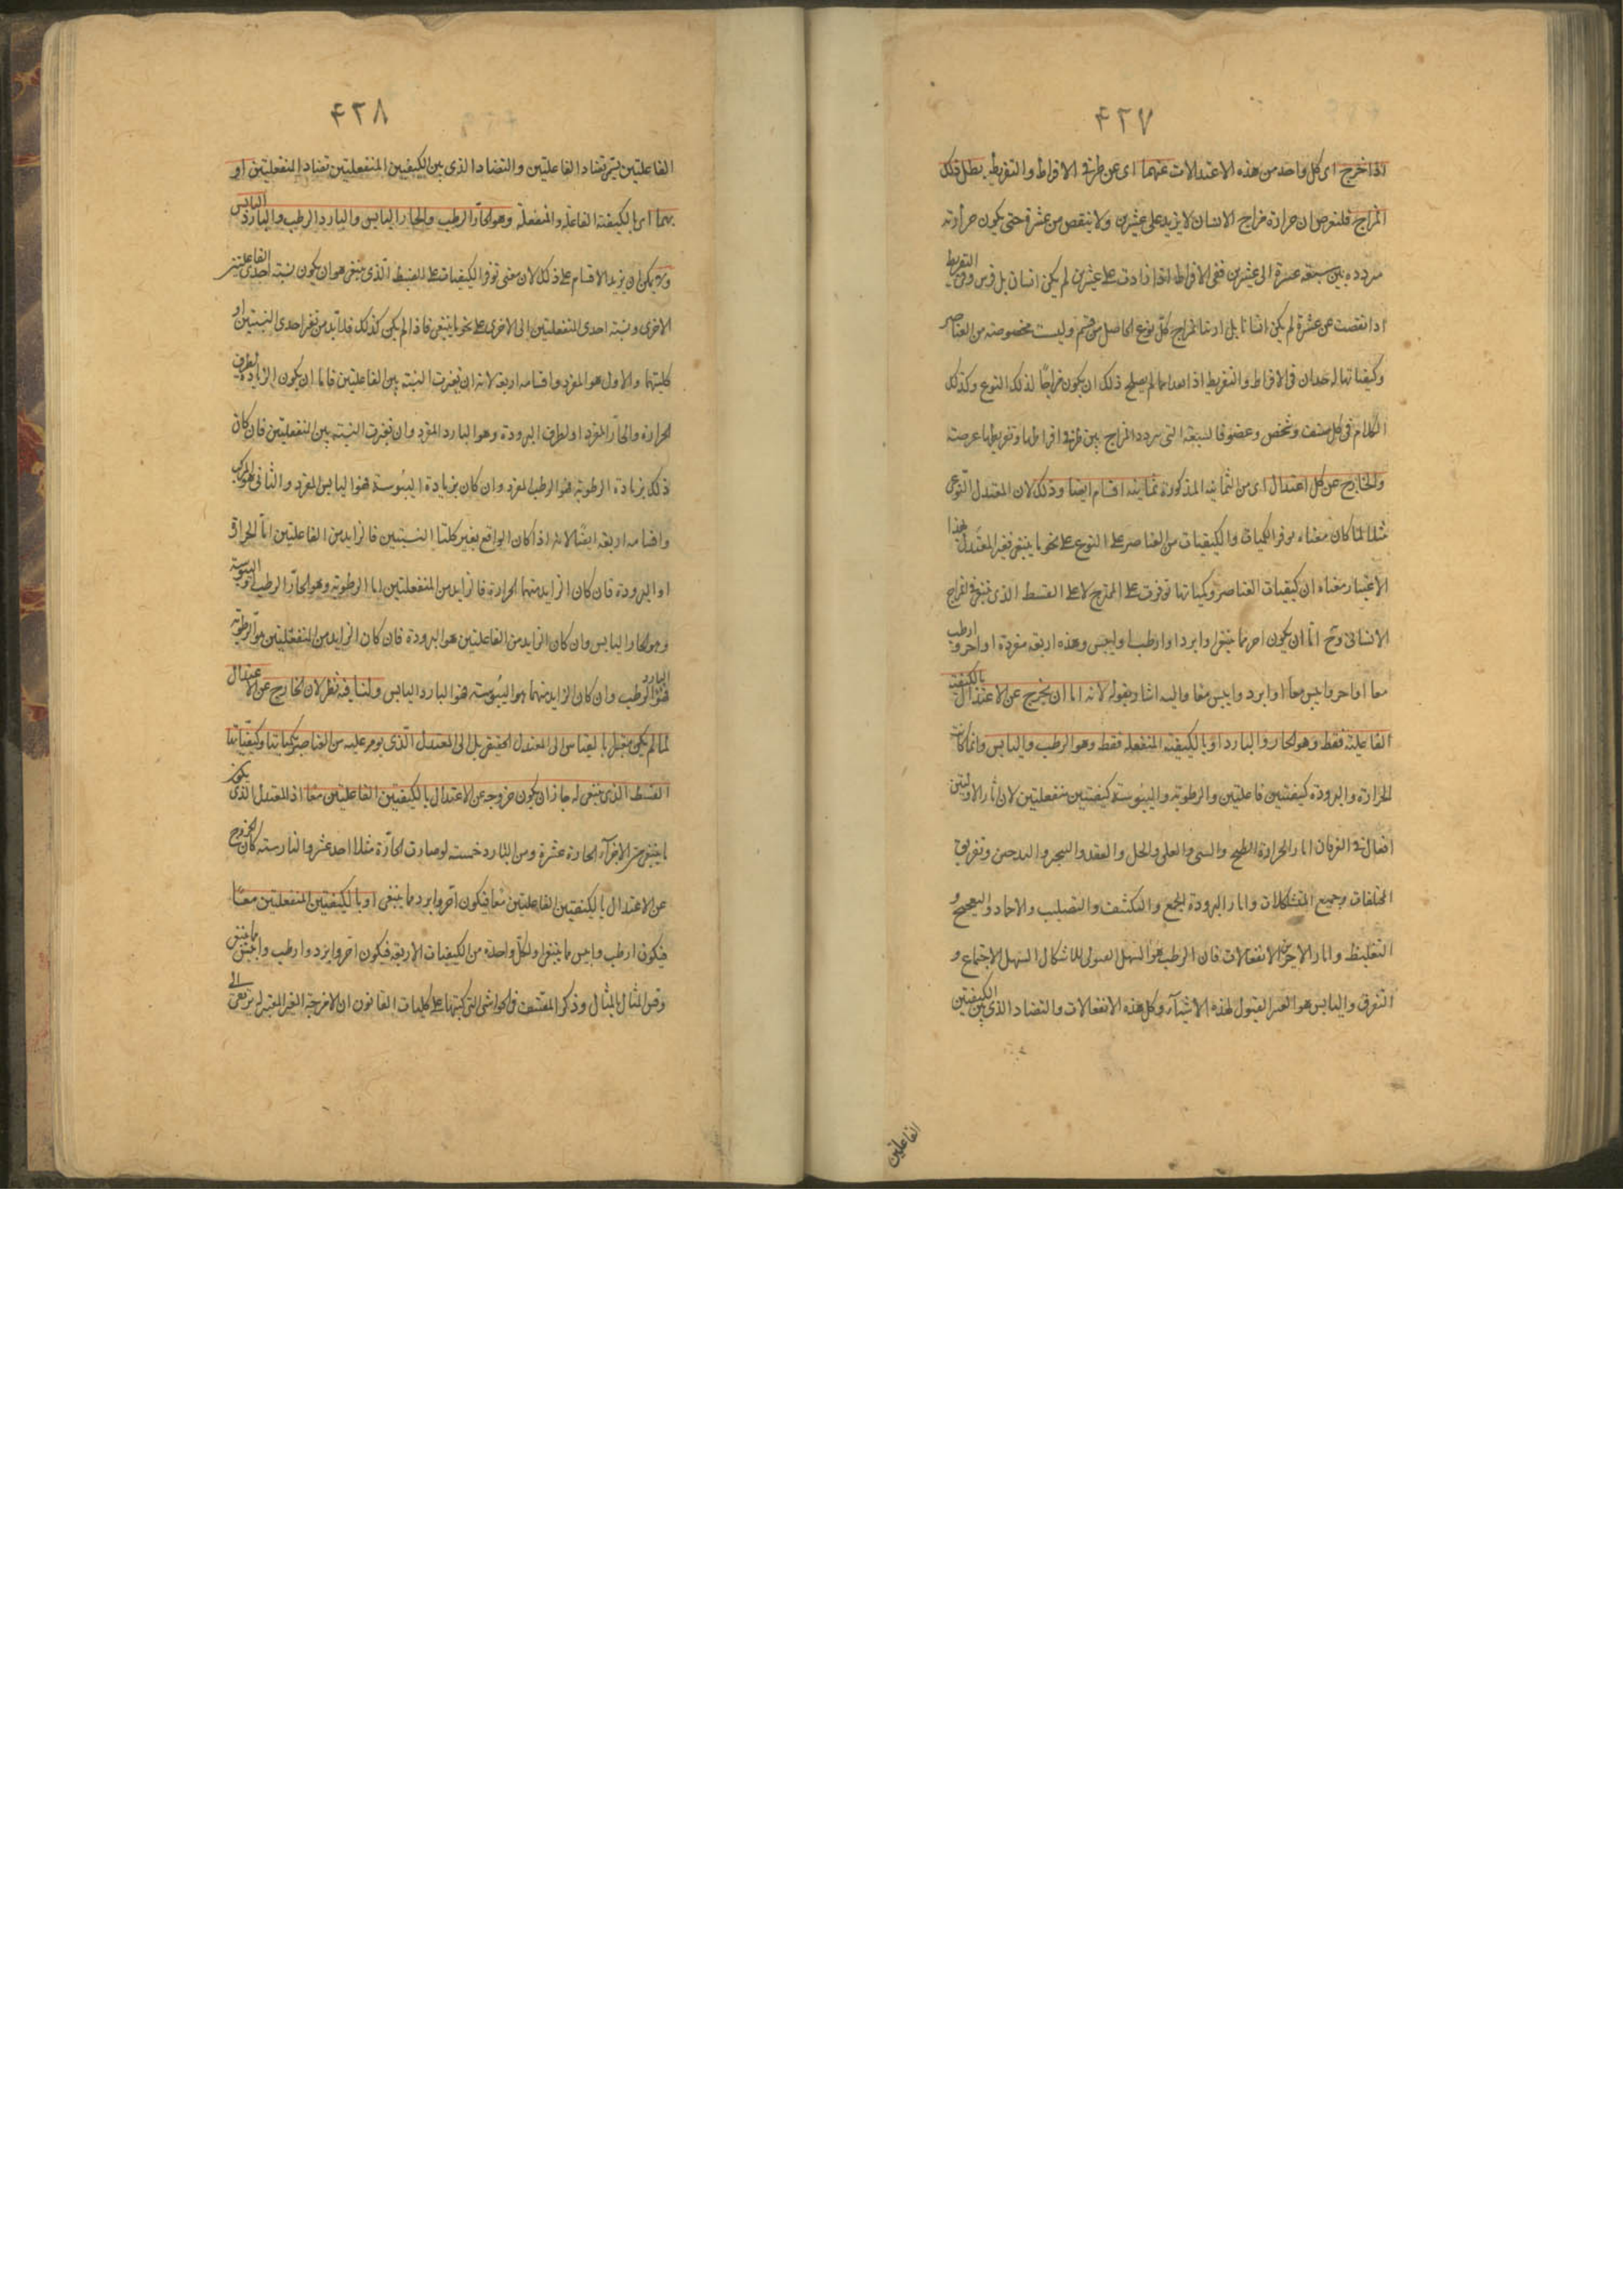 ۴۲۷
اذا خرج اى كل واحد من هذه الاعتدالات عنهما اى عن طرفى الافراط والتفريط بطل ذلك
المزاج فلنفرض ان حرارة مزاج الانسان لا يزيد على عشرين ولا ينقص من عشرة حتى يكون حرارته
مترددة بين عشرة الى عشرين ففى الافراط اذا زادت على عشرين لم يكن انسانا بل فرس وفى التفريط
اذا نقصت عن عشرة لم يكن انسانا بل ارنبا فمزاج كل نوع الحاصل من العناصر
وكيفياتها له حدان فى الافراط والتفريط اذا لم يصلح ذلك ان يكون مزاجا لذلك النوع وكذلك
الكلام فى كل صنف وشخص وعضو فالسبعة التى تتردد المزاج بين طرفى افراطها وتفريطها عرضه
والخارج عن كل اعتدال اى من الثمانية المذكورة ثمانية اقسام ايضا وذلك لان المعتدل النوعى
مثلا لما كان معناه توفر الكميات والكيفيات من العناصر على النوع على نحو ما ينبغى فغير المعتدل بهذا
الاعتبار معناه ان كيفيات العناصر وكمياتها توفرت على الممتزج لا على القسط الذى ينبغى فى المزاج
الانسانى وح اما ان يكون احر مما ينبغى او ابرد او ارطب او ايبس وهذه اربعة مفردة او احر وارطب
معا او احر وايبس معا او ابرد وايبس معا واليه اشار بقوله لانه اما ان يخرج عن الاعتدال بالكيفية
الفاعلة فقط وهو الحار والبارد او بالكيفية المنفعلة فقط وهو الرطب واليابس وانما كانت
الحرارة والبرودة كيفيتين فاعلتين والرطوبة واليبوسة كيفيتين منفعلتين لان اثار الاوليين
افعال اثار الحرارة الطبخ والشى والغلى والحل والعقد والتبخير والتدخين وتفريق
المختلفات وجميع المتشكلات واثار البرودة الجمع والتكثيف والتصليب والاجماد و
التغليظ واثار الاخريين الانفعالات فان الرطب هو السهل القبول للاشكال السهل الاجتماع و
التفرق واليابس هو العسر القبول لهذه الاشياء وكل هذه الانفعالات والتضاد الذى بين الكيفيتين
الفاعلتين
۴۲۸
الفاعلتين يسمى تضاد الفاعلتين والتضاد الذى بين الكيفيتين المنفعلتين تضاد المنفعلتين او
بهما اى بالكيفية الفاعلة والمنفعلة وهو الحار الرطب والحار اليابس والبارد الرطب والبارد اليابس
ولا يمكن ان يزيد الاقسام على ذلك لان معنى توفر الكيفيات على القسط الذى ينبغى هو ان يكون نسبة احدى الفاعلتين
الاخرى ونسبة احدى المنفعلتين الى الاخرى على نحو ما ينبغى فاذا لم يكن كذلك فلا بد من تغير احدى النسبتين او
كلتيهما والاول هو المفرد واقسامه اربعة لانه ان تغيرت النسبة بين الفاعلتين فاما ان يكون الزيادة لطرف
الحرارة والحار المفرد او لطرف البرودة وهو البارد المفرد وان تغيرت النسبة بين المنفعلتين فان كان
ذلك بزيادة الرطوبة فهو الرطب المفرد وان كان بزيادة اليبوسة فهو اليابس المفرد والثانى هو المركب
واقسامه اربعة ايضا لانه اذا كان الواقع تغير كلتا النسبتين فالزايد من الفاعلتين اما الحرارة
او البرودة فان كان الزايد منهما الحرارة فالزايد من المنفعلتين اما الرطوبة وهو الحار الرطب او اليبوسة
وهو الحار اليابس وان كان الزايد من الفاعلتين هو البرودة فان كان الزايد من المنفعلتين هو الرطوبة
فهو البارد الرطب وان كان الزايد منهما هو اليبوسة فهو البارد اليابس ولنا فيه نظر لان الخارج عن الاعتدال
لما لم يكن مقيسا بالقياس الى المعتدل الحقيقى بل الى المعتدل الذى يوفر عليه من العناصر بكمياتها وكيفياتها
القسط الذى ينبغى له جاز ان يكون خروجه عن الاعتدال بالكيفيتين الفاعلتين معا اذ المعتدل الذى يكون
ما ينبغى من الاجزاء الحارة عشرة ومن الباردة خمسة لو صارت الحارة مثلا احد عشر والباردة ستة كان الخروج
عن الاعتدال بالكيفيتين الفاعلتين معا فيكون احر وابرد مما ينبغى او بالكيفيتين المنفعلتين معا
فيكون ارطب وايبس مما ينبغى او لكل واحدة من الكيفيات الاربعة فيكون احر وابرد وارطب وايبس مما ينبغى
وقس المثال بالمثال وذكر المصنف فى الحواشى التى كتبها على كليات القانون ان الامزجة الغير المعتدلة ترتقى الى